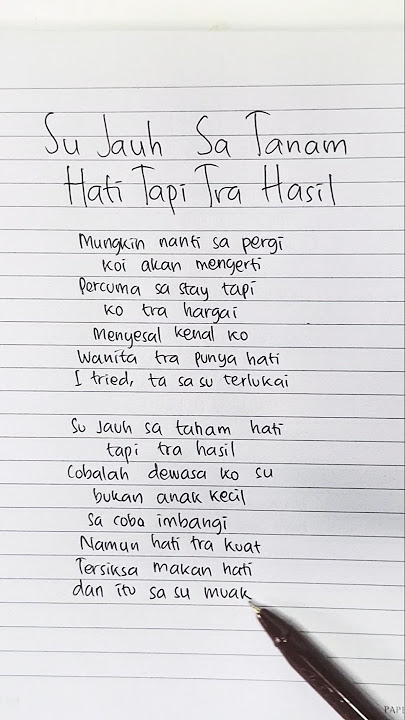 Su Jauh Sa Tanam
Hati Tapi Tra Hasil
Mungkin nanti sa pergi
koi akan mengerti
Percuma sa stay tapi
ko tra hargai
Menyesal kenal ko
Wanita tra punya hati
I tried, ta sa su terlukai
Su Jauh sa tanam hati
tapi tra hasil
Cobalah dewasa ko su
bukan anak kecil
Sa coba imbangi
Namun hati tra kuat
Tersiksa makan hati
dan itu sa su muak